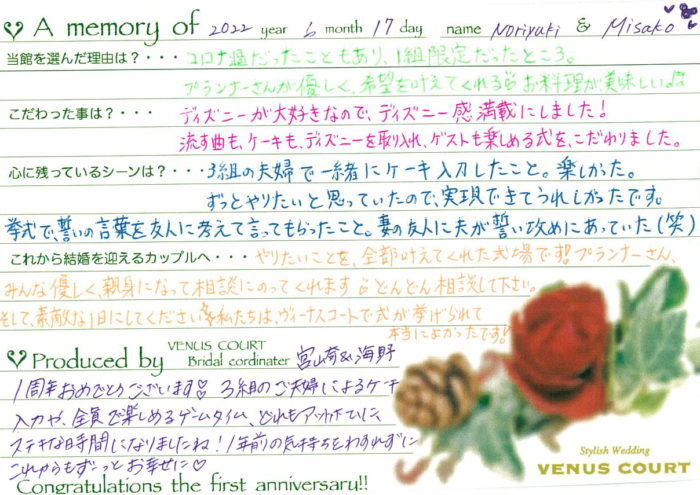 A memory of 2022 year 6 month 17 day name Noriyuki & Misako
当館を選んだ理由は？・・・コロナ過だったこともあり、1組限定だったところ。
プランナーさんが優しく、希望を叶えてくれる お料理が美味しい
こだわった事は？・・・ディズニーが大好きなので、ディズニー感満載にしました！
流す曲も、ケーキも、ディズニーを取り入れ、ゲストも楽しめる式を、こだわりました。
心に残っているシーンは？・・・3組の夫婦で一緒にケーキ入刀したこと。楽しかった。
ずっとやりたいと思っていたので、実現できてうれしかったです。
挙式で、誓いの言葉を友人に考えて言ってもらったこと。妻の友人に夫が誓い攻めにあっていた(笑)
これから結婚を迎えるカップルへ・・・やりたいことを、全部叶えてくれた式場です!! プランナーさん、
みんな優しく、親身になって相談にのってくれます どんどん相談して下さい。
そして、素敵な1日にしてください 私たちは、ヴィーナスコートで式が挙げられて
本当によかったです!
Produced by VENUS COURT Bridal cordinater 宮崎&海野
1周年おめでとうございます♡ 3組のご夫婦によるケーキ
入刀や、全員で楽しめるゲームタイム、どれもアットホームで
ステキな時間になりましたね！1年前の気持ちをわすれずに
これからもずーっとお幸せに♡
Congratulations the first anniversary!!
Stylish Wedding
VENUS COURT